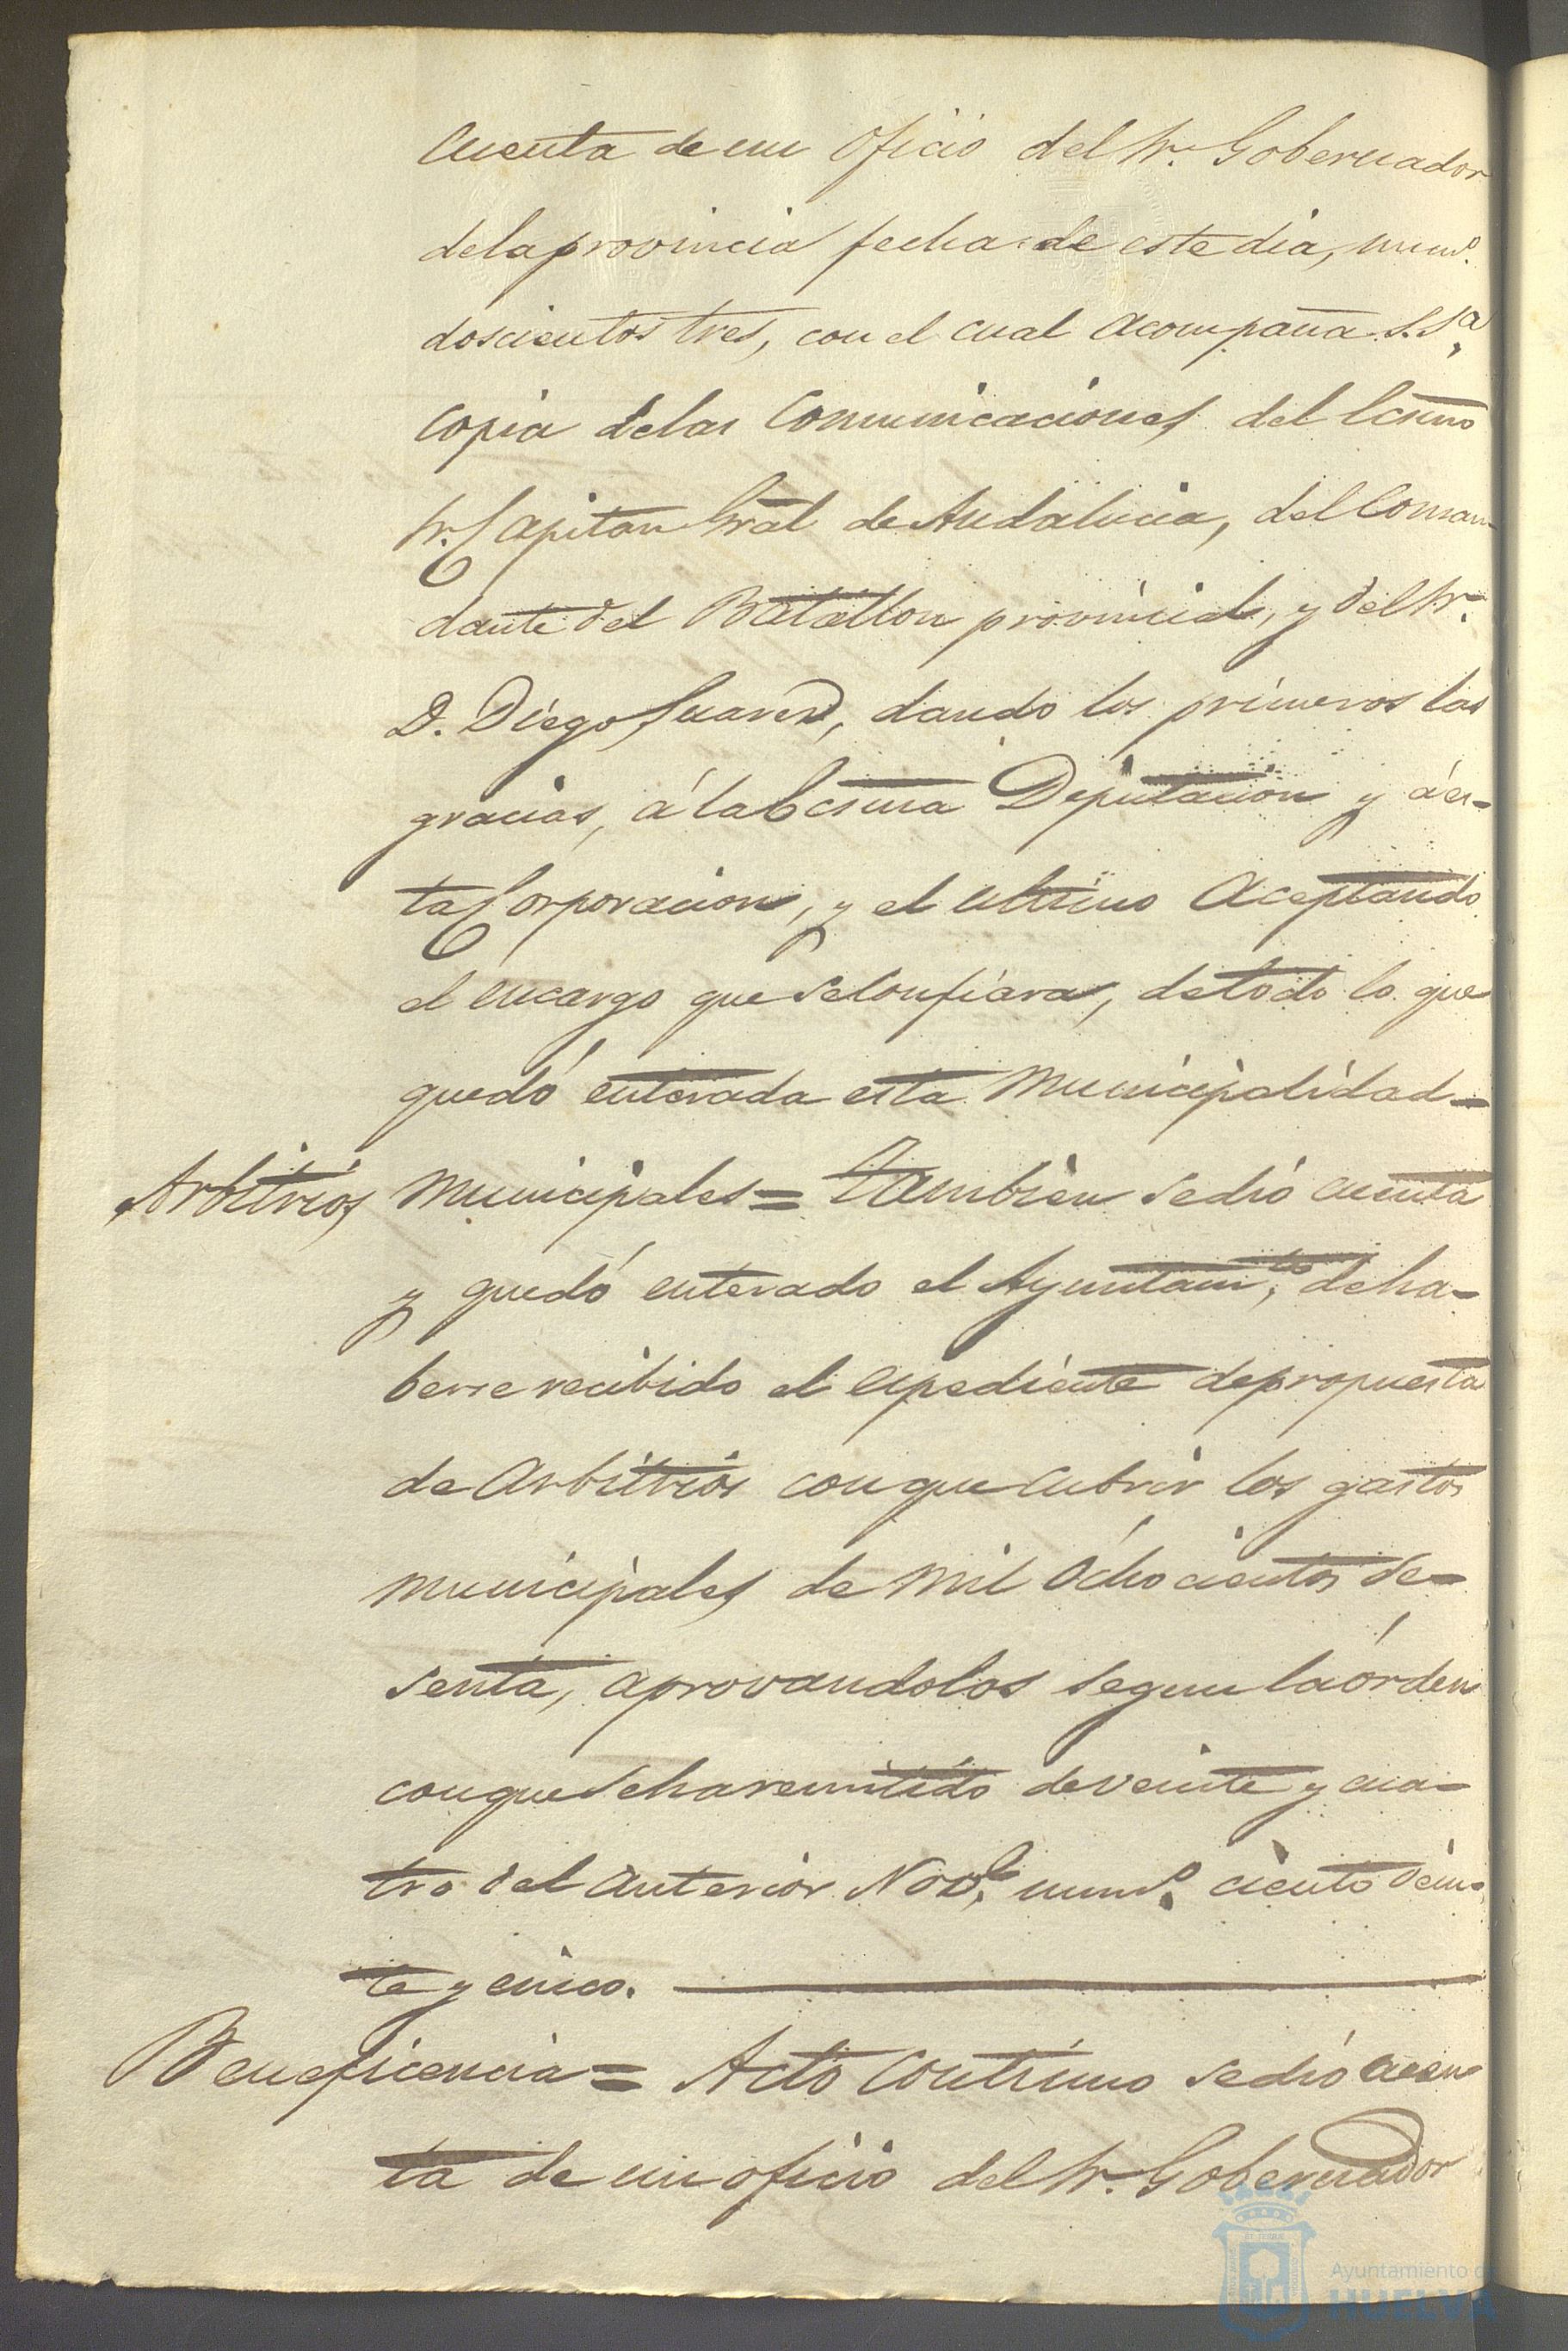 Cuenta de un Oficio del Sr. Gobernador
de la provincia fecha de este dia, numº.
doscientos tres, con el cual acompaña S. Sª.
copia de las Comunicaciones del Ecsmo
Sr. Capitan Gral de Andalucia, del Coman
dante del Batallon provincial, y del Sr.
D. Diego Suarez, dando los primeros las
gracias, á la Ecsma Diputacion y á es-
ta Corporacion, y el ultimo Aceptando
el encargo que se Confiara, de todo lo que
quedó enterada esta Municipalidad=
Arbitrios Municipales= Tambien se dió cuenta
y quedó enterado el Ayuntamto, de ha-
berse recibido el espediente de propuesta
de Arbitrios con que Cubrir los gastos
municipales de mil Ochocientos se-
senta, aprovandolos segun la órden
con que se ha remitido de veinte y cua-
tro del anterior Nove. numº. ciento vein-
te y cinco.
Beneficencia= Acto Contínuo se dió cuen
ta de un oficio del Sr. Gobernador
Ayuntamiento de
HUELVA